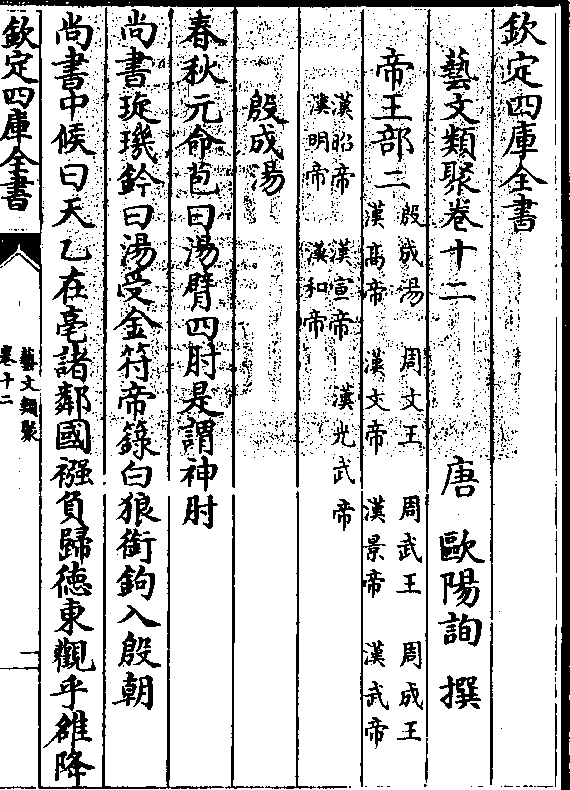 欽定四庫全書
藝文類聚卷十二
唐 歐陽詢 撰
帝王部二
殷成湯 周文王 周武王 周成王
漢高帝 漢文帝 漢景帝 漢武帝
漢昭帝 漢宣帝 漢光武帝
漢明帝 漢和帝
殷成湯
春秋元命苞曰湯臂四肘是謂神肘
尚書琁璣鈐曰湯受金符帝籙白狼銜鉤入殷朝
尚書中候曰天乙在亳諸鄰國襁負歸德東觀乎雒降
欽定四庫全書
藝文類聚
卷十二
一